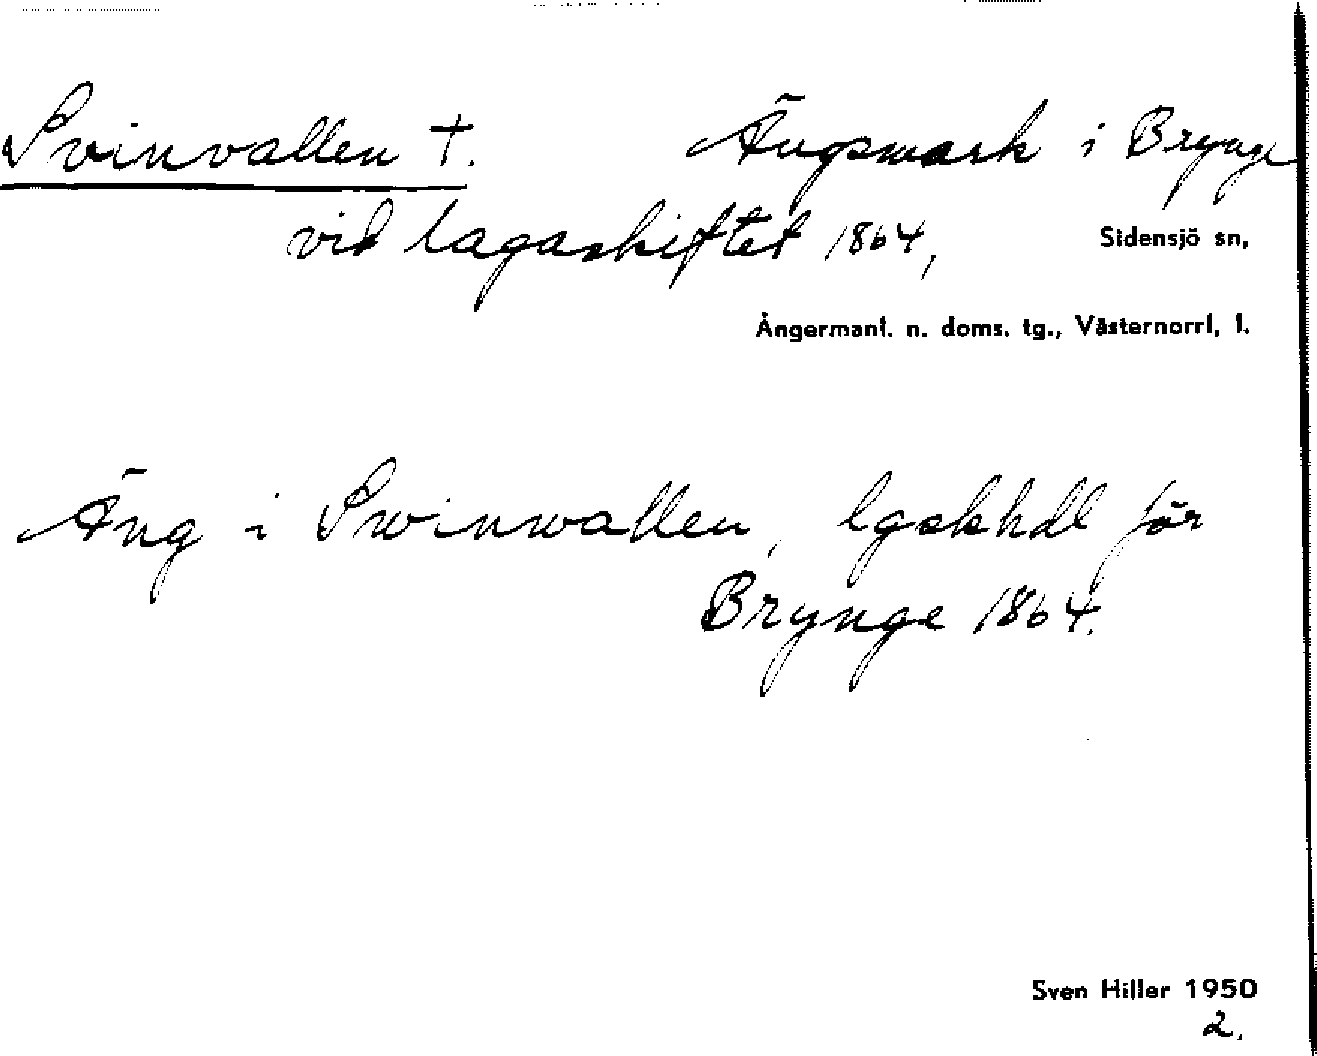 Svinvallen †. Ängsmark i Brynge
vid lagaskiftet 1864,
Sidensjö sn,
Ångermanl. n. doms. tg., Västernorrl, l.
Äng i Swinwallen, lgskhdl för
Brynge 1864.
Sven Hiller 1950
2.